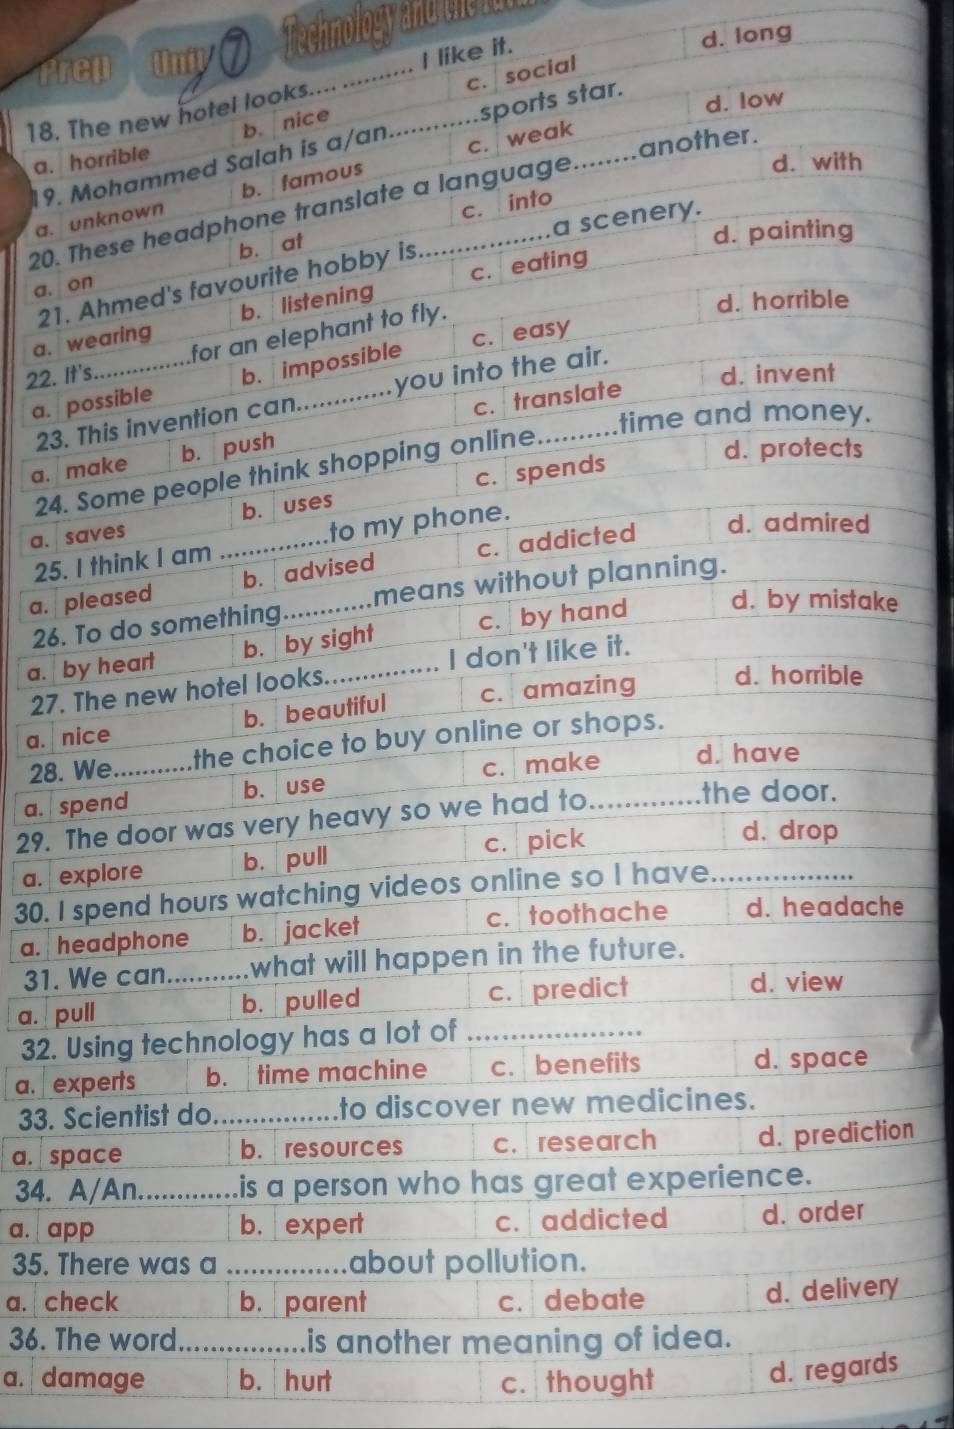 Prep Unit 7 Technology and the
18. The new hotel looks.... ............ I like it.
a. horrible b. nice c. social d. long
19. Mohammed Salah is a/an............sports star.
a. unknown b. famous c. weak d. low
20. These headphone translate a language........another.
a. on b. at c. into d. with
21. Ahmed's favourite hobby is.................a scenery.
a. wearing b. listening c. eating d. painting
22. It's.............for an elephant to fly.
a. possible b. impossible c. easy d. horrible
23. This invention can............you into the air.
a. make b. push c. translate d. invent
24. Some people think shopping online..........time and money.
a. saves b. uses c. spends d. protects
25. I think I am ..............to my phone.
a. pleased b. advised c. addicted d. admired
26. To do something............means without planning.
a. by heart b. by sight c. by hand d. by mistake
27. The new hotel looks............... I don't like it.
a. nice b. beautiful c. amazing d. horrible
28. We...........the choice to buy online or shops.
a. spend b. use c. make d. have
29. The door was very heavy so we had to..............the door.
a. explore b. pull c. pick d. drop
30. I spend hours watching videos online so I have.................
a. headphone b. jacket c. toothache d. headache
31. We can...........what will happen in the future.
a. pull b. pulled c. predict d. view
32. Using technology has a lot of ....................
a. experts b. time machine c. benefits d. space
33. Scientist do................to discover new medicines.
a. space b. resources c. research d. prediction
34. A/An.............is a person who has great experience.
a. app b. expert c. addicted d. order
35. There was a ...............about pollution.
a. check b. parent c. debate d. delivery
36. The word................is another meaning of idea.
a. damage b. hurt c. thought d. regards